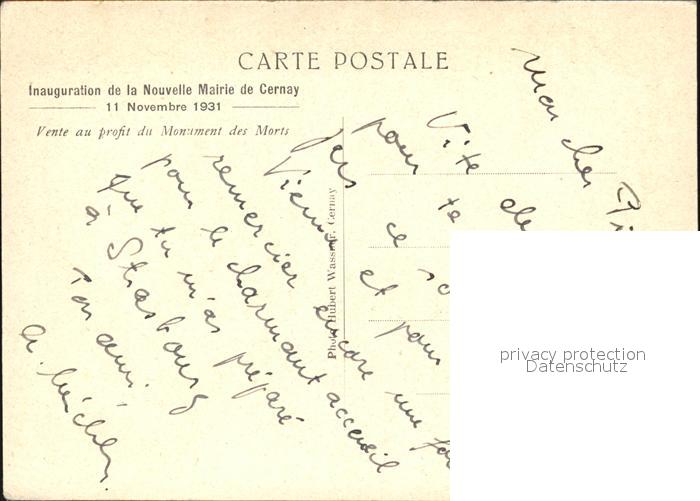 CARTE POSTALE
Inauguration de la Nouvelle Mairie de Cernay
11 Novembre 1931
Vente au profit du Monument des Morts
Photo Hubert Wassmer, Cernay
Mon cher
Vite de
pour te
ce
et pour
remercier encore une
pour le charmant accueil
que tu m'as préparé
à Strasbourg
Ton ami.
privacy protection
Datenschutz